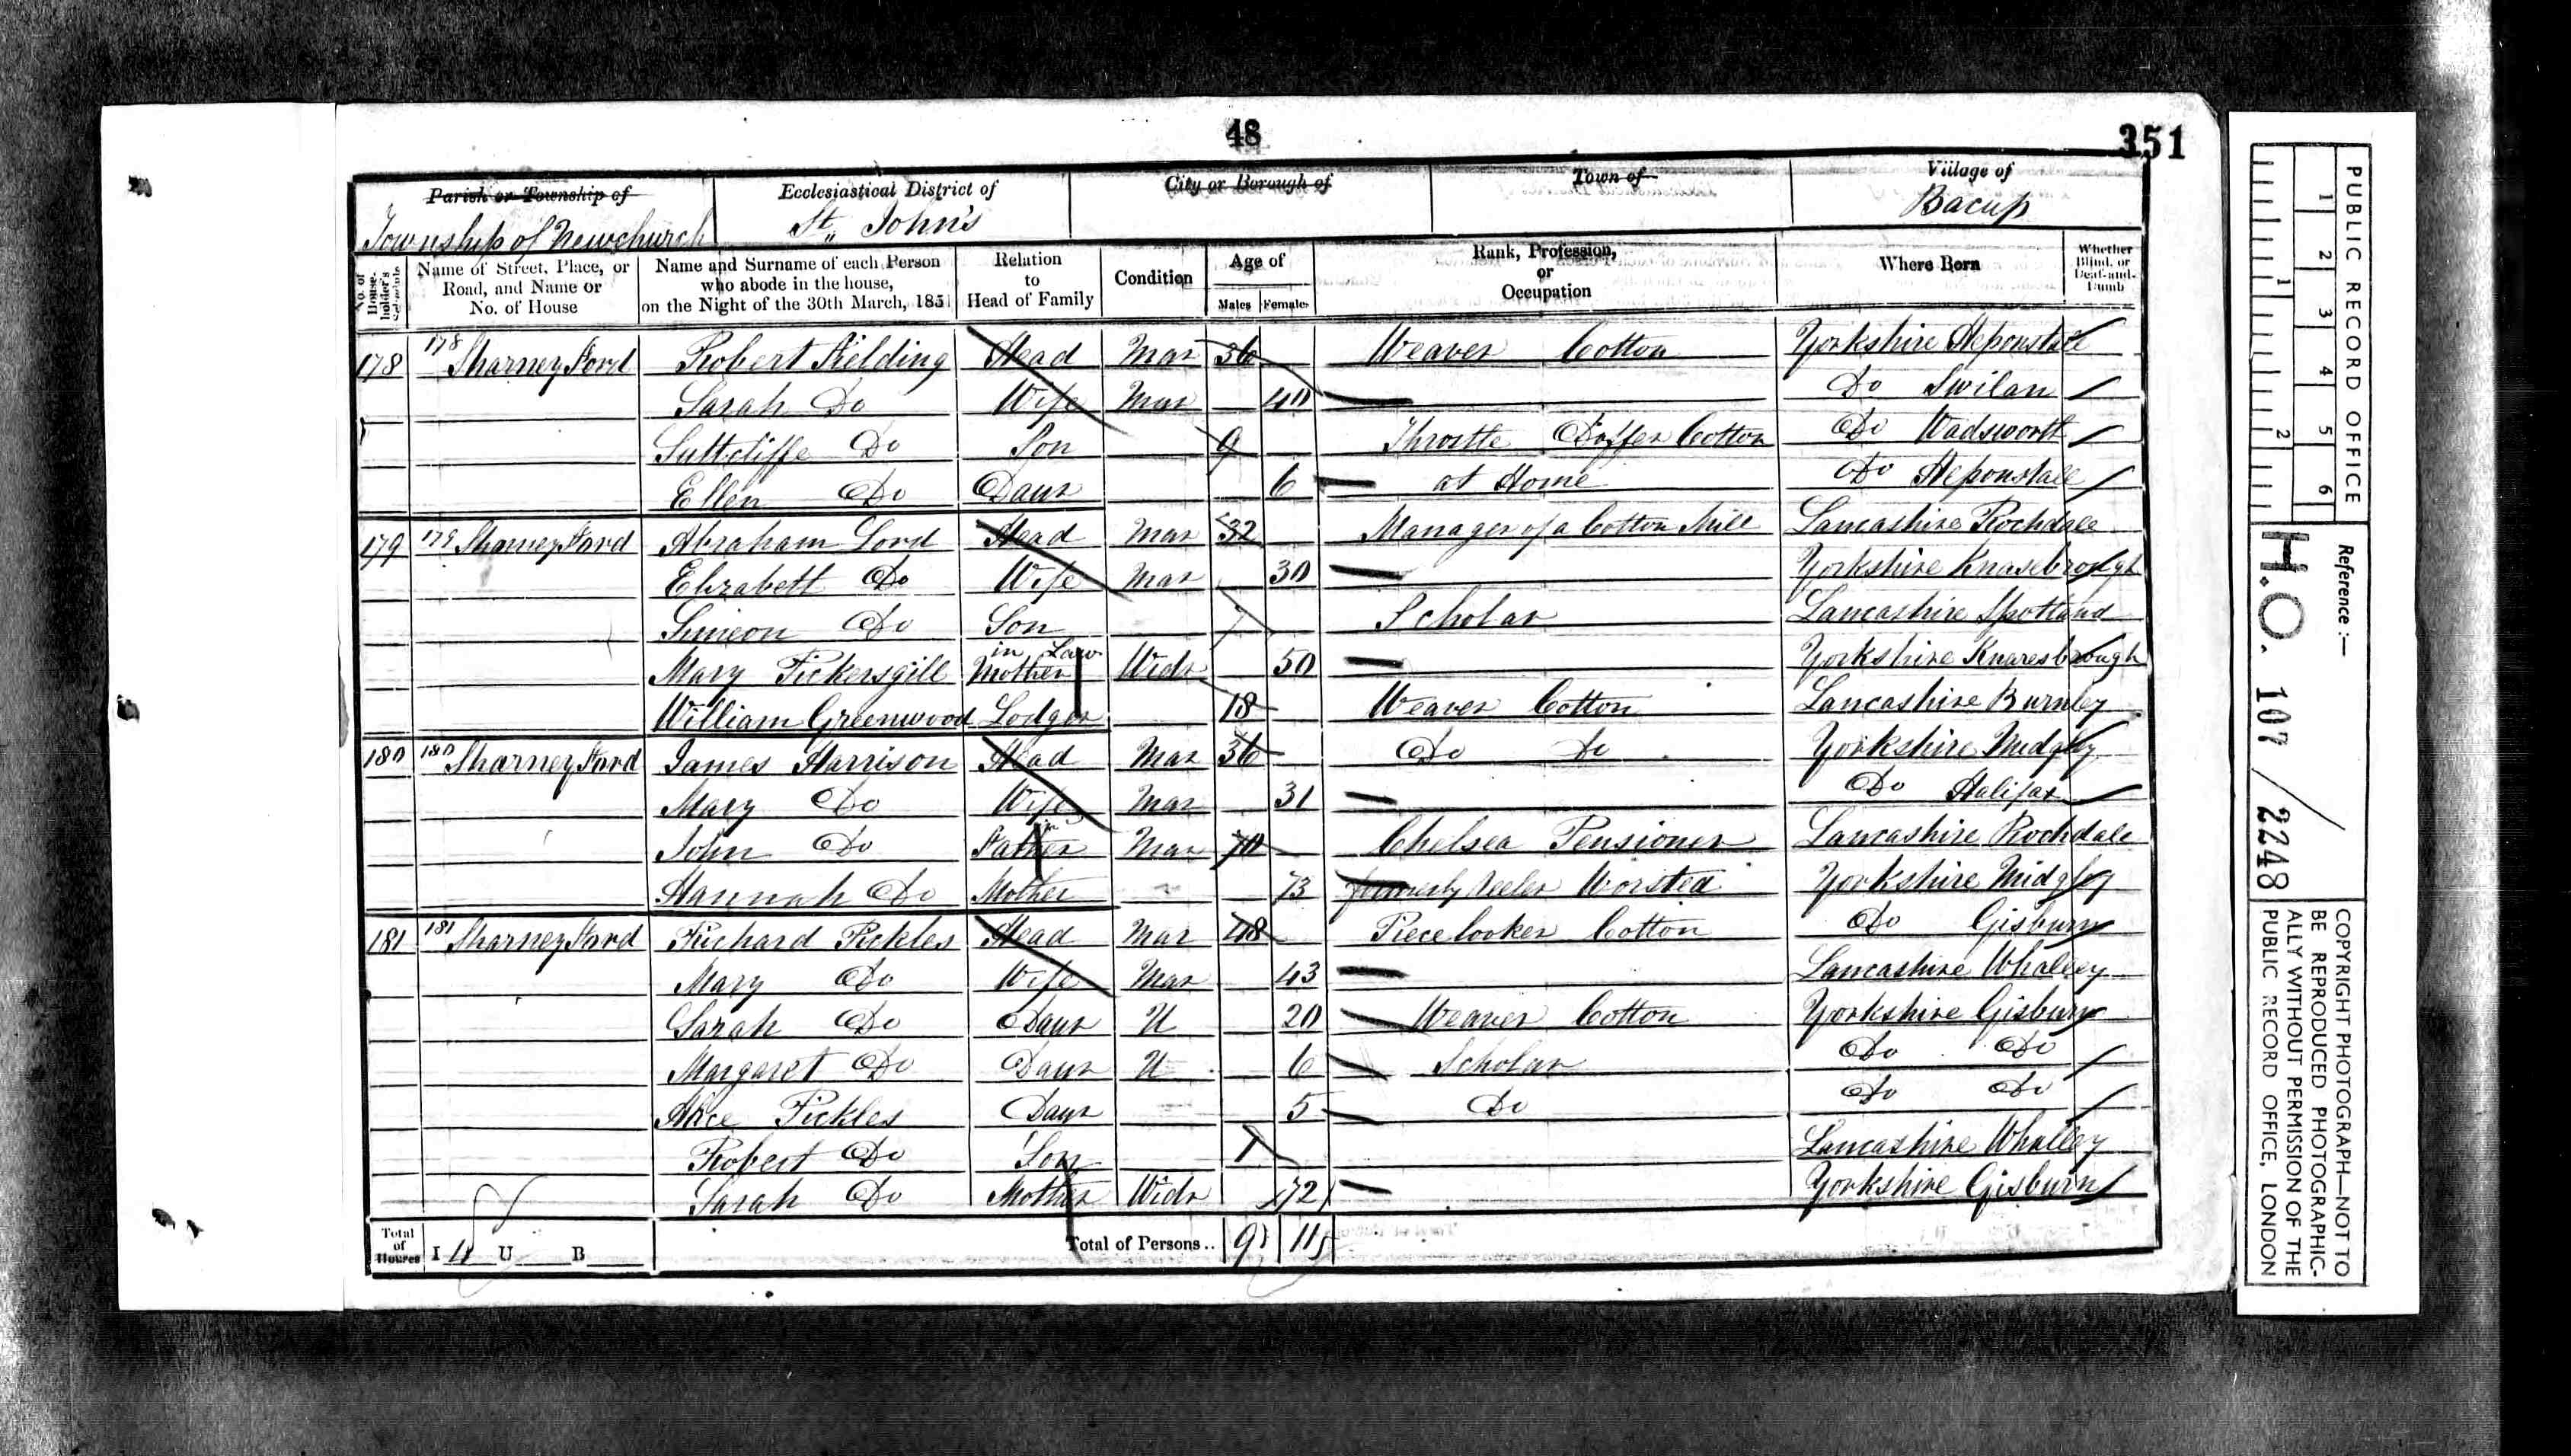 48
351
Parish or Township of
Township of Newchurch
Ecclesiastical District of
St John's
City or Borough of
Town of
Village of
Bacup
No. of Householder's Schedule
Name of Street, Place, or Road, and Name or No. of House
Name and Surname of each Person who abode in the house, on the Night of the 30th March, 1851
Relation to Head of Family
Condition
Age of
Males Females
Rank, Profession, or Occupation
Where Born
Whether Blind, or Deaf-and-Dumb
178 178 Sharney Ford Robert Fielding Head Mar 36 Weaver Cotton Yorkshire Heponstall
Sarah Do Wife Mar 40 Do Swilan
Suttcliffe Do Son 9 Throstle Doffer Cotton Do Wadsworth
Ellen Do Daur 6 at Home Do Heponstall
179 179 Sharney Ford Abraham Lord Head Mar 32 Manager of a Cotton Mill Lancashire Rochdale
Elizabeth Do Wife Mar 30 Yorkshire Knasebrough
Simeon Do Son 7 Scholar Lancashire Spotland
Mary Pickersgill Mother in Law Widr 50 Yorkshire Knaresbrough
William Greenwood Lodger 18 Weaver Cotton Lancashire Burnley
180 180 Sharney Ford James Harrison Head Mar 36 Do Do Yorkshire Midgley
Mary Do Wife Mar 31 Do Halifax
John Do Father Mar 70 Chelsea Pensioner Lancashire Rochdale
Hannah Do Mother 73 formerly reeler Worsted Yorkshire Midgley
181 181 Sharney Ford Richard Pickles Head Mar 48 Piecelooker Cotton Do Gisburn
Mary Do Wife Mar 43 Lancashire Whalley
Sarah Do Daur U 20 Weaver Cotton Yorkshire Gisburn
Margaret Do Daur U 6 Scholar Do Do
Alice Pickles Daur 5 Do Do Do
Robert Do Son 1 Lancashire Whalley
Sarah Do Mother Widr 72 Yorkshire Gisburn
Total of Houses I 4 U B
Total of Persons.. 9 11
PUBLIC RECORD OFFICE
1 2 3 4 5 6
1 2
Reference :-
H.O. 107 / 2248
COPYRIGHT PHOTOGRAPH—NOT TO
BE REPRODUCED PHOTOGRAPHIC-
ALLY WITHOUT PERMISSION OF THE
PUBLIC RECORD OFFICE, LONDON